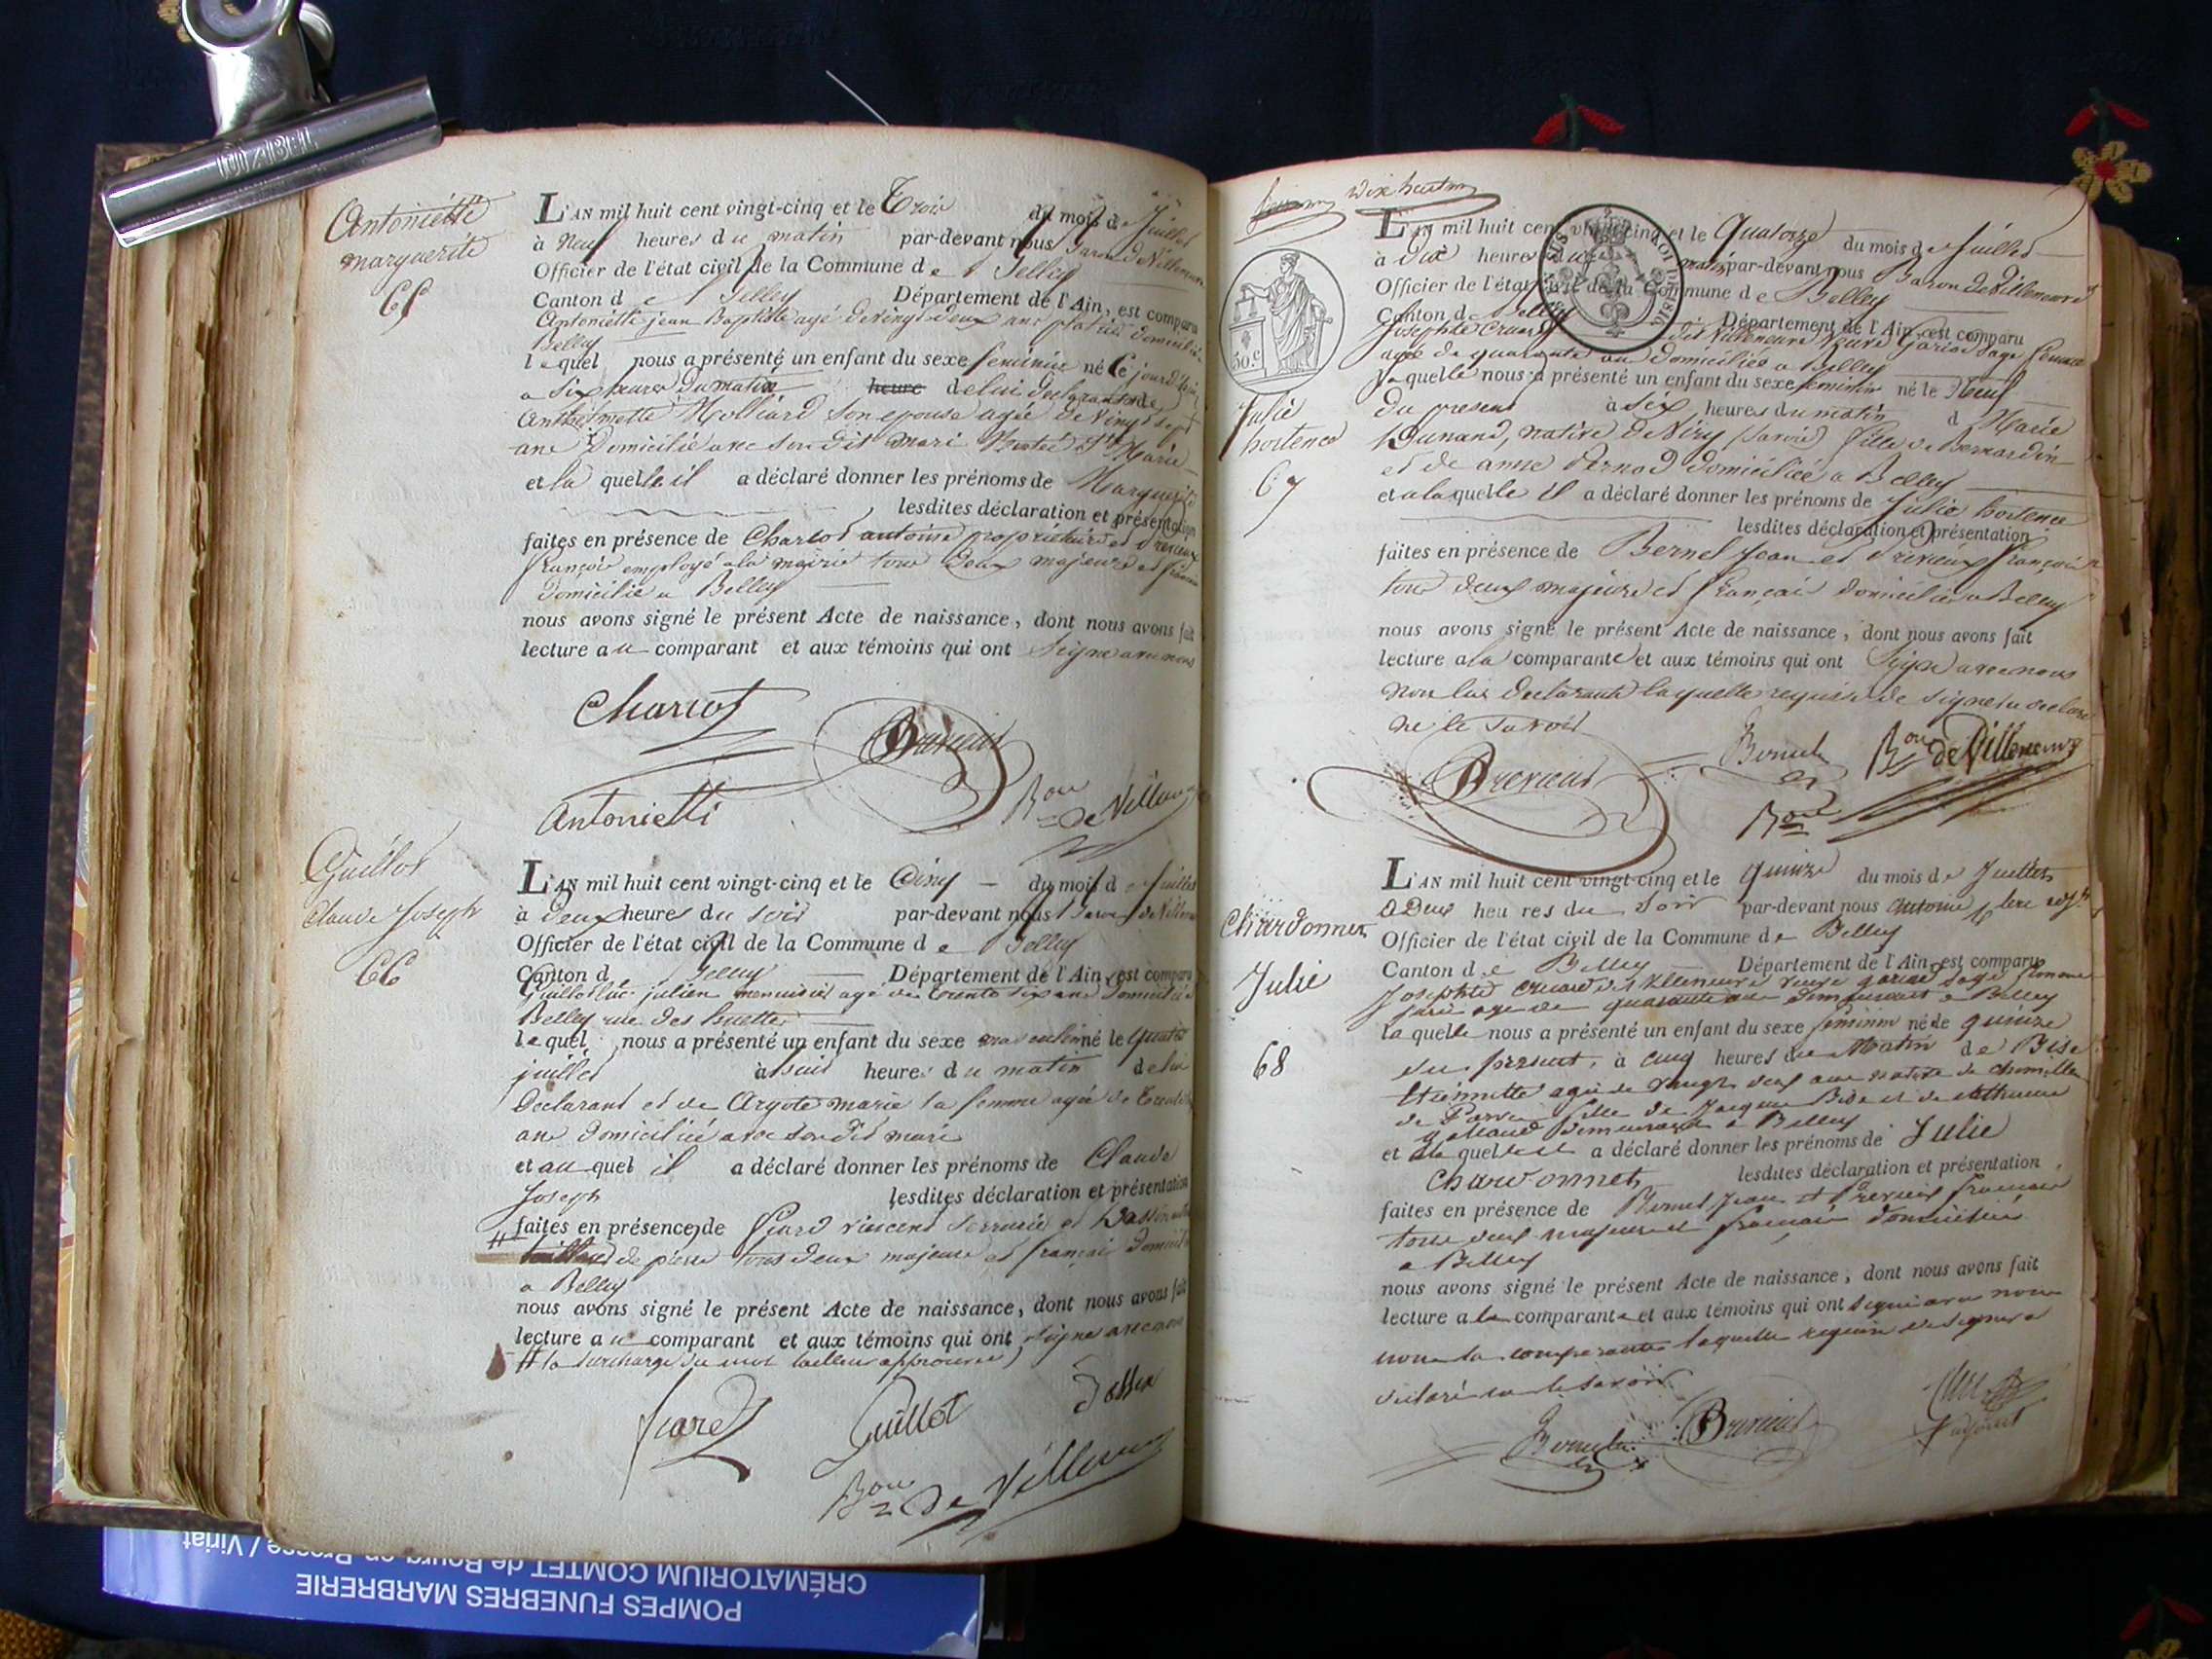 Antonietti
marguerite
65
L'AN mil huit cent vingt-cinq et le Trois du mois de Juillet
à Neuf heures du matin par-devant nous Baron de Villeneuve
Officier de l'état civil de la Commune de Belley
Canton de Belley Département de l'Ain, est comparu
Antonietti jean Baptiste agé de Vingt deux ans domicilié
Belley
lequel nous a présenté un enfant du sexe feminin né Ce jourd'hui
a Six heures du matin heure de lui declarant et de
Anthelmette Molliard Son epouse agée de Vingt sept
ans Domicilié avec son dit mari
et la quelle il a déclaré donner les prénoms de Marguerite
lesdites déclaration et présentation
faites en présence de Charcot antoine propriétaire et Brevieux
françois employé a la mairie tous deux majeurs et francais
domicilié a Belley
nous avons signé le présent Acte de naissance, dont nous avons fait
lecture au comparant et aux témoins qui ont Signé avec nous
Charcot
Brevieux
Antonietti
Bon de Villeneuve
Guillot
Claude Joseph
66
L'AN mil huit cent vingt-cinq et le Cinq du mois de Juillet
à Deux heures du soir par-devant nous Baron de Villeneuve
Officier de l'état civil de la Commune de Belley
Canton de Belley Département de l'Ain, est comparu
Guillot luc julien menuisier agé de trente six ans domicilié a
Belley rue des
lequel nous a présenté un enfant du sexe masculin né le quatre
juillet à huit heures du matin de lui
Declarant et de Argote marie sa femme agée de trente
ans domiciliée avec son dit mari
et au quel il a déclaré donner les prénoms de Claude
Joseph lesdites déclaration et présentation
faites en présence de Picard Vincent Serrurier et
# de pierre tous deux majeurs et français domicilié
a Belley
nous avons signé le présent Acte de naissance, dont nous avons fait
lecture au comparant et aux témoins qui ont signé avec nous
# la surcharge du mot tailleur approuvée
Guillot
Bon de Villeneuve
50.c
Julie
hortence
67
L'AN mil huit cent vingt-cinq et le Quatorze du mois de Juillet
à Dix heures du matin par-devant nous Baron de Villeneuve
Officier de l'état civil de la Commune de Belley
Canton de Belley Département de l'Ain, est comparu
Josephte Cruard dit Villeneuve Veuve Garice Sage femme
agée de quarante ans domiciliée a Belley
la quelle nous a présenté un enfant du sexe feminin né le Neuf
du present à six heures du matin d Marie
Dunand, native de Viry (Savoie) fille de Bernardin
et de anne Pernod domiciliée a Belley
et a la quelle il a déclaré donner les prénoms de Julie hortence
lesdites déclaration et présentation
faites en présence de Bernet Jean et Brevieux françois
tous deux majeurs et français domicilié a Belley
nous avons signé le présent Acte de naissance, dont nous avons fait
lecture a la comparante et aux témoins qui ont Signé avec nous
non la declarante laquelle requise de signer a declaré
ne le savoir
Brevieux
Bernet
Bon de Villeneuve
Bon
Chardonnet
Julie
68
L'AN mil huit cent vingt-cinq et le quinze du mois de Juillet
a Deux heures du Soir par-devant nous antoine
Officier de l'état civil de la Commune de Belley
Canton de Belley Département de l'Ain, est comparu
Josephte Cruard dit Villeneuve veuve garice Sage femme
agée de quarante ans demeurant a Belley
la quelle nous a présenté un enfant du sexe feminin né le quinze
du present, à cinq heures du Matin de Bise
Etiennette agée de vingt neuf ans native de
de Parves fille de Jacques Bise et de
demeurant a Belley
et a la quelle il a déclaré donner les prénoms de Julie
Chardonnet lesdites déclaration et présentation
faites en présence de Bernet Jean et Brevieux francois
tous deux majeurs et français domiciliés
a Belley
nous avons signé le présent Acte de naissance, dont nous avons fait
lecture a la comparante et aux témoins qui ont signé avec nous
non la comparante laquelle requise de signer a
declaré ne le savoir
Bernet
Brevieux
adjoint
CRÉMATORIUM COMTET de Bourg-en-Bresse / Viriat
POMPES FUNEBRES MARBRERIE